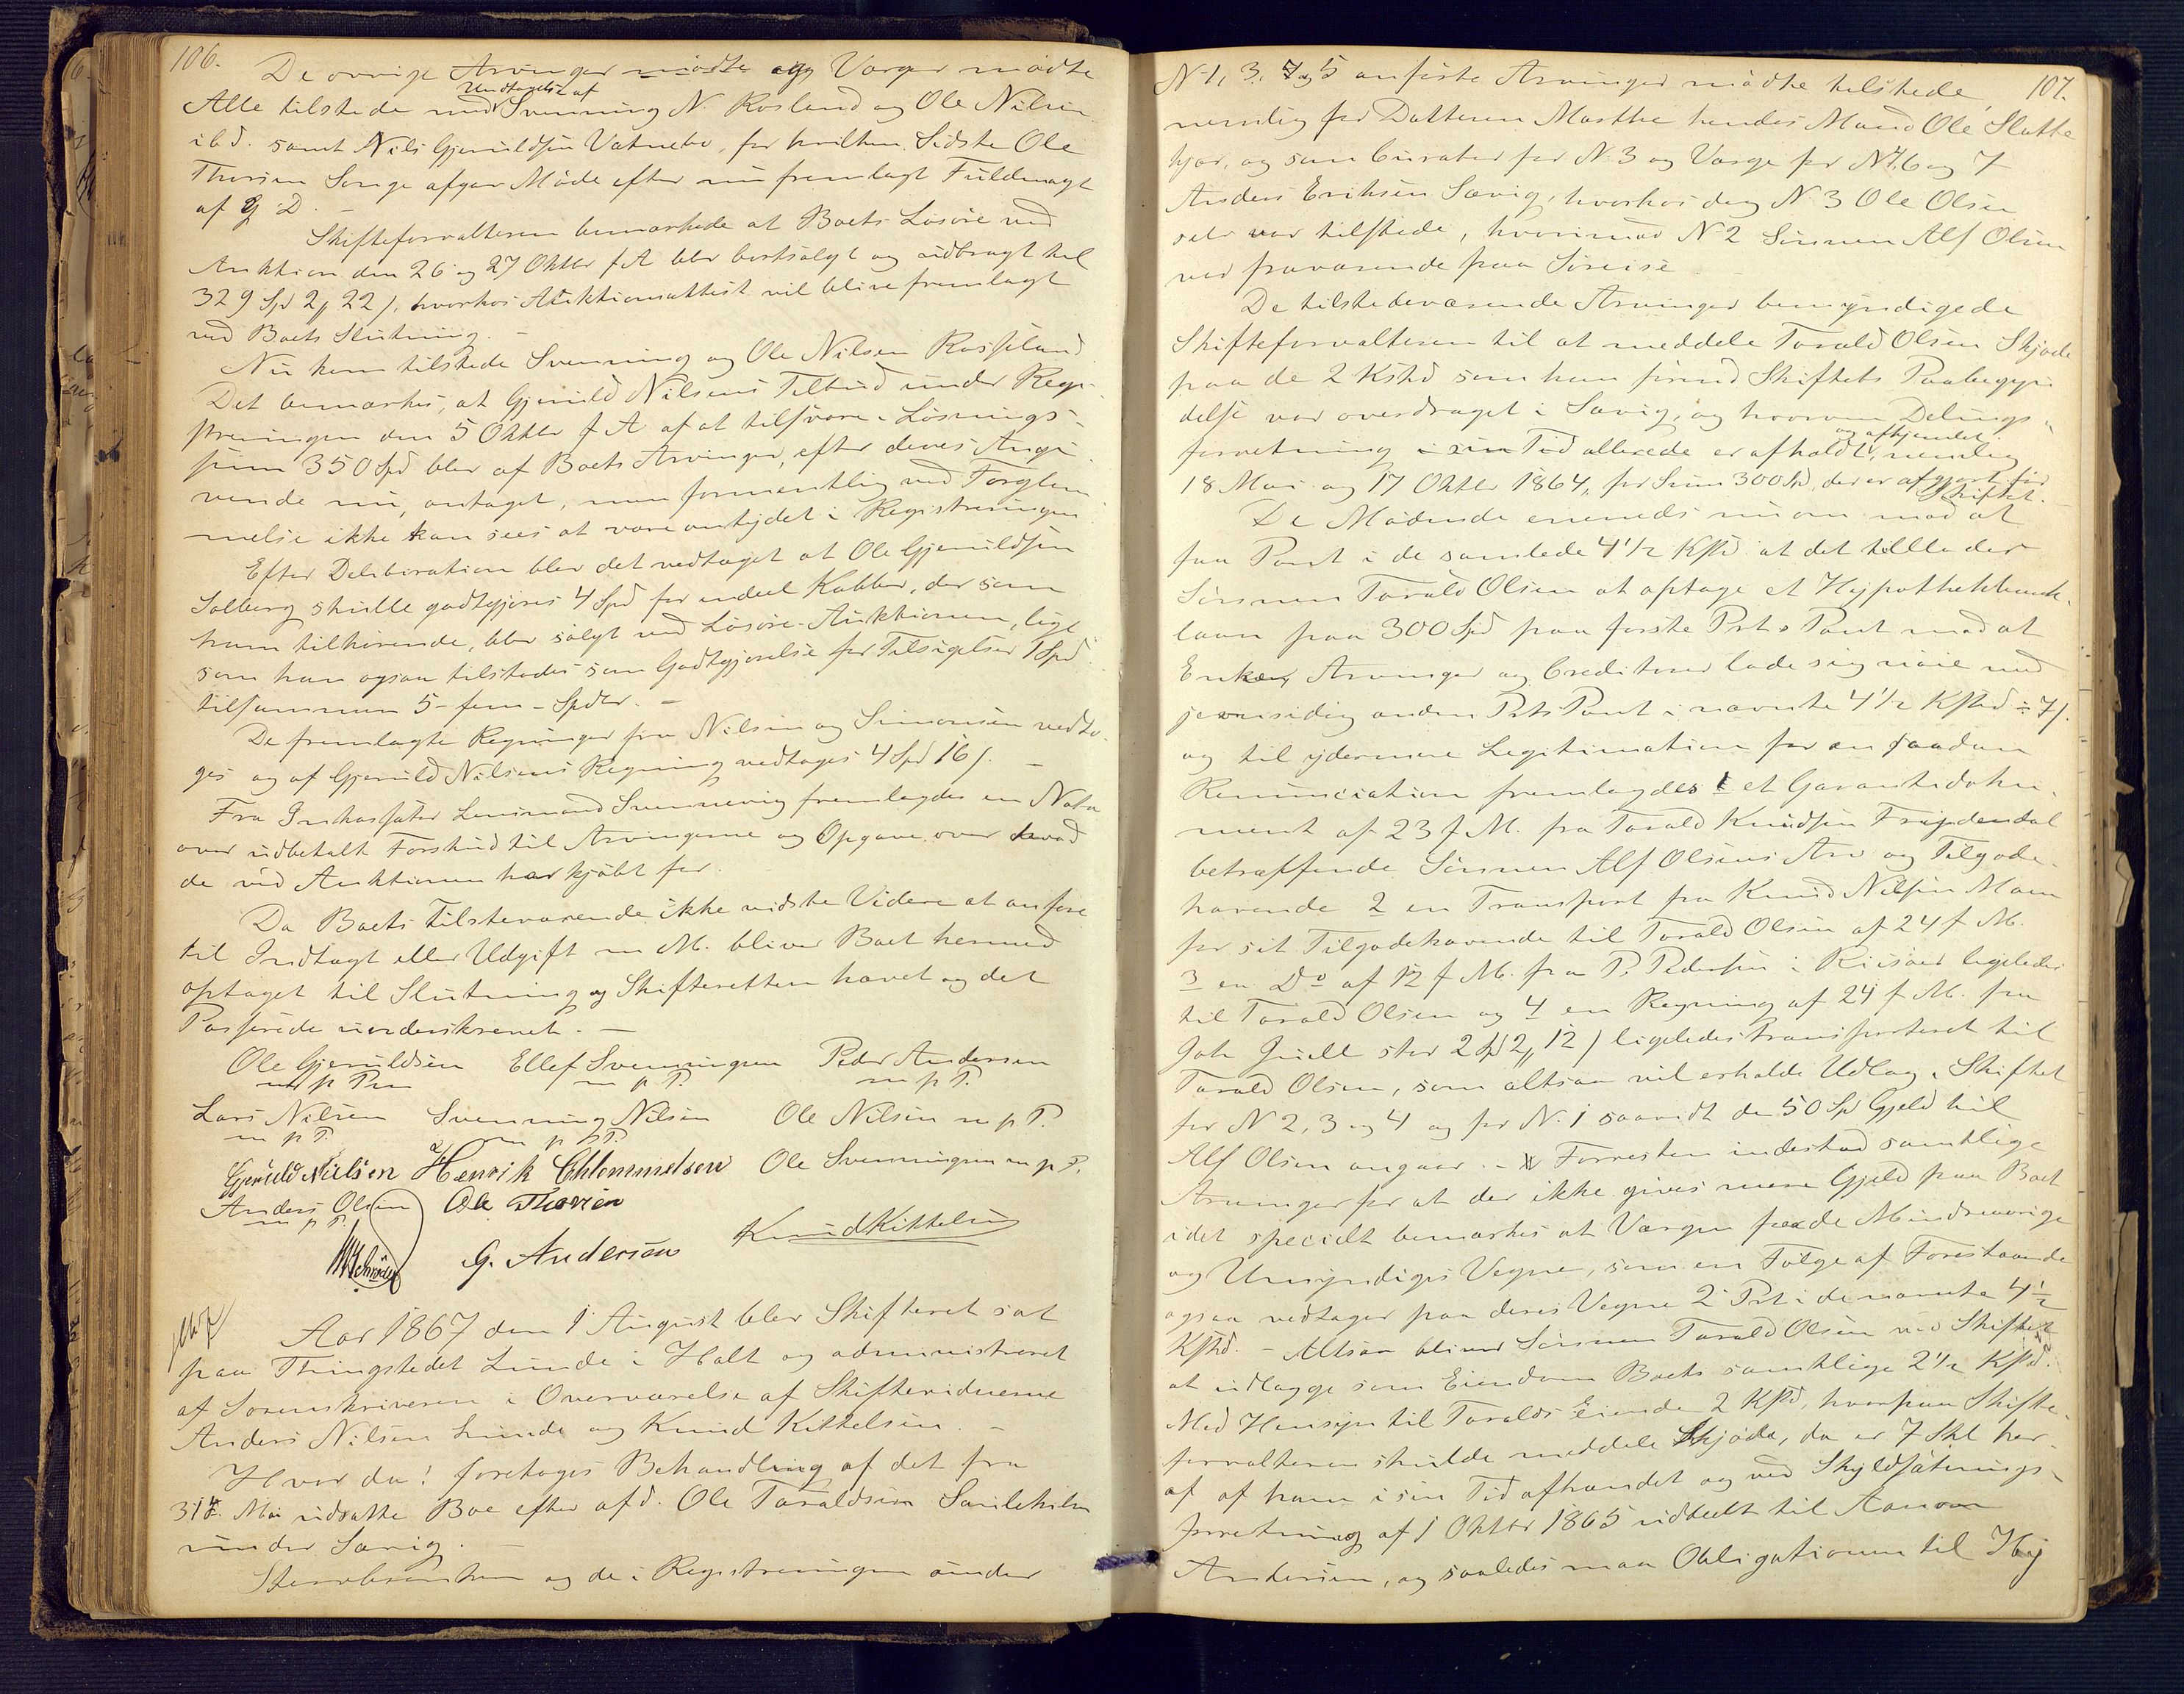 106.
De øvrige Arvinger mødte og Værger mødte
Alle tilstede med Undtagelse af Svenning N. Rosland og Ole Nilsen
ibd. samt Nils Gjeruldsen Vatnebo, for hvilken Sidste Ole
Thorsen Songe afgav Møde efter nu fremlagt Fuldmagt
af g. D. –
Skifteforvalteren bemærkede at Boets Løsøre ved
Auktion den 26 og 27 Oktbr f A blev bortsolgt og udbragt til
329 Spd 2„ 22 /, hvorhos Auktionsattest vil blive fremlagt
ved Boets Slutning. –
Nu kom tilstede Svenning og Ole Nilsen Rosseland
Det bemærkes, at Gjeruld Nilsens Tilbud under Regi-
streringen den 5 Oktbr f A af at tilsvare i Løsnings-
sum 350 Spd blev af Boets Arvinger, efter deres Angi-
vende nu, antaget, men formentlig ved Forglem
melse ikke kan sees at være antydet i Registreringen
Efter Deliberation blev det vedtaget at Ole Gjeruldsen
Solberg skulle godtgjøres 4 Spd for endeel Kobber, der som
ham tilhørende, blev solgt ved Løsøre-Auktionen, lige
som han ogsaa tilstodes som Godtgjørelse for Tilsigelser 1 Spd
tilsammen 5 - fem - Spdlr. –
De fremlagte Regninger fra Nilsen og Simonsen vedto-
ges og af Gjeruld Nilsens Regning vedtoges 4 Spd 16 /. –
Fra Inkassator Lensmand Svennevig fremlagdes en Nota
over udbetalt Forskud til Arvingerne og Opgave over hvad
de ved Auktionen har kjøbt for.
Da Boets Tilsteværende ikke vidste Videre at anføre
til Indtægt eller Udgift m M. bliver Boet hermed
optaget til Slutning og Skifteretten hævet og det
Passerede underskrevet. –
Ole Gjeruldsen Ellef Svenningsen Peder Andersen
m p Pen m p P. m p P.
Lars Nilsen Svenning Nilsen Ole Nilsen m p P.
m p P. m p P.
Gjeruld Nielsen Henrik Chlemmetsen Ole Svenningsen m p P.
Anders Olsen Ole Thorsen
m p P.
Schrøder G. Andersen Knud Kittelsen
Aar 1867 den 1 August blev Skifteret sat
paa Thingstedet Lunde i Holt og administreret
af Sorenskriveren i Overværelse af Skiftevidnerne
Anders Nilsen Lunde og Knud Kittelsen. –
Hvor da! foretoges Behandling af det fra
31te Mai udsatte Boe efter afd. Ole Taraldsen
under Sævig. –
og de i Registreringen under
107.
N 1, 3, 7 og 5 anførte Arvinger mødte tilstede,
nemlig for Datteren Marthe hendes Mand Ole Slotte
kjær, og som Curator for N. 3 og Værge for N 4, 6 og 7
Anders Eriksen Sævig, hvorhos dog N. 3 Ole Olsen
selv var tilstede, hvorimod N 2 Sønnen Alf Olsen
var fraværende paa Søreise. –
De tilstedeværende Arvinger bemyndigede
Skifteforvalteren til at meddele Tarald Olsen Skjøde
paa de 2 Kskd som ham førend Skiftets Paabegyn
delse var overdraget i Sævig, og hvorom Delings-
forretning i sin Tid allerede er afholdt og afhjemlet, nemlig
18 Mai og 17 Oktbr 1864, for Sum 300 Spd, der er afgjort før
Skiftet.
De Mødende enedes nu om mod at
faa Pant i de samlede 4 1/2 Kskd at det tillades
Sønnen Tarald Olsen at optage et Hypothekbank-
laan paa 300 Spd paa første Prts Pant mod at
Enken, Arvinger og Creditorer lade sig nøie med
jevnsidig anden Prts Pant i nævnte 4 1/2 Kskd ÷ 7 /.
og til ydermere Legitimation for en saadan
Renunciation fremlagdes 1 et Garantidoku-
ment af 23 f M. fra Tarald Knudsen Frydendal
betræffende Sønnen Alf Olsens Arv og Tilgode-
havende 2 en Transport fra Knud Nilsen Moen
for sit Tilgodehavende til Tarald Olsen af 24 f M.
3 en Do af 12 f M. fra P. Pedersen i Riisøer ligeledes
til Tarald Olsen og 4 en Regning af 24 f M. fra
Joh Juell stor 2 Spd 2„ 12 / ligeledes transporteret til
Tarald Olsen, som altsaa vil erholde Udlæg i Skiftet
for N 2, 3 og 4 og for N. 1 saavidt de 50 Spd Gjeld til
Alf Olsen angaar. – Forresten indestod samtlige
Arvinger for at der ikke gives mere Gjeld paa Boet
idet specielt bemærkes at Værgen paa de Mindreaarige
og Umyndiges Vegne, som en Følge af Forestaaende
ogsaa vedtager paa deres Vegne 2 Prt i de nævnte 4 1/2
Kskd. – Altsaa bliver Sønnen Tarald Olsen ved Skiftet
at udlægge som Eiendom Boets samtlige 2 1/2 Kskd.
Med Hensyn til Taralds Eiende 2 Kskd, hvorpaa Skifte-
forvalteren skulde meddele Skjøde, da er 7 Skl her-
af af ham i sin Tid afhændet og ved Skyldsætnings-
forretning af 1 Oktbr 1865 uddeelt til Aanon
Andersen, og saaledes maa Obligationen til Hy